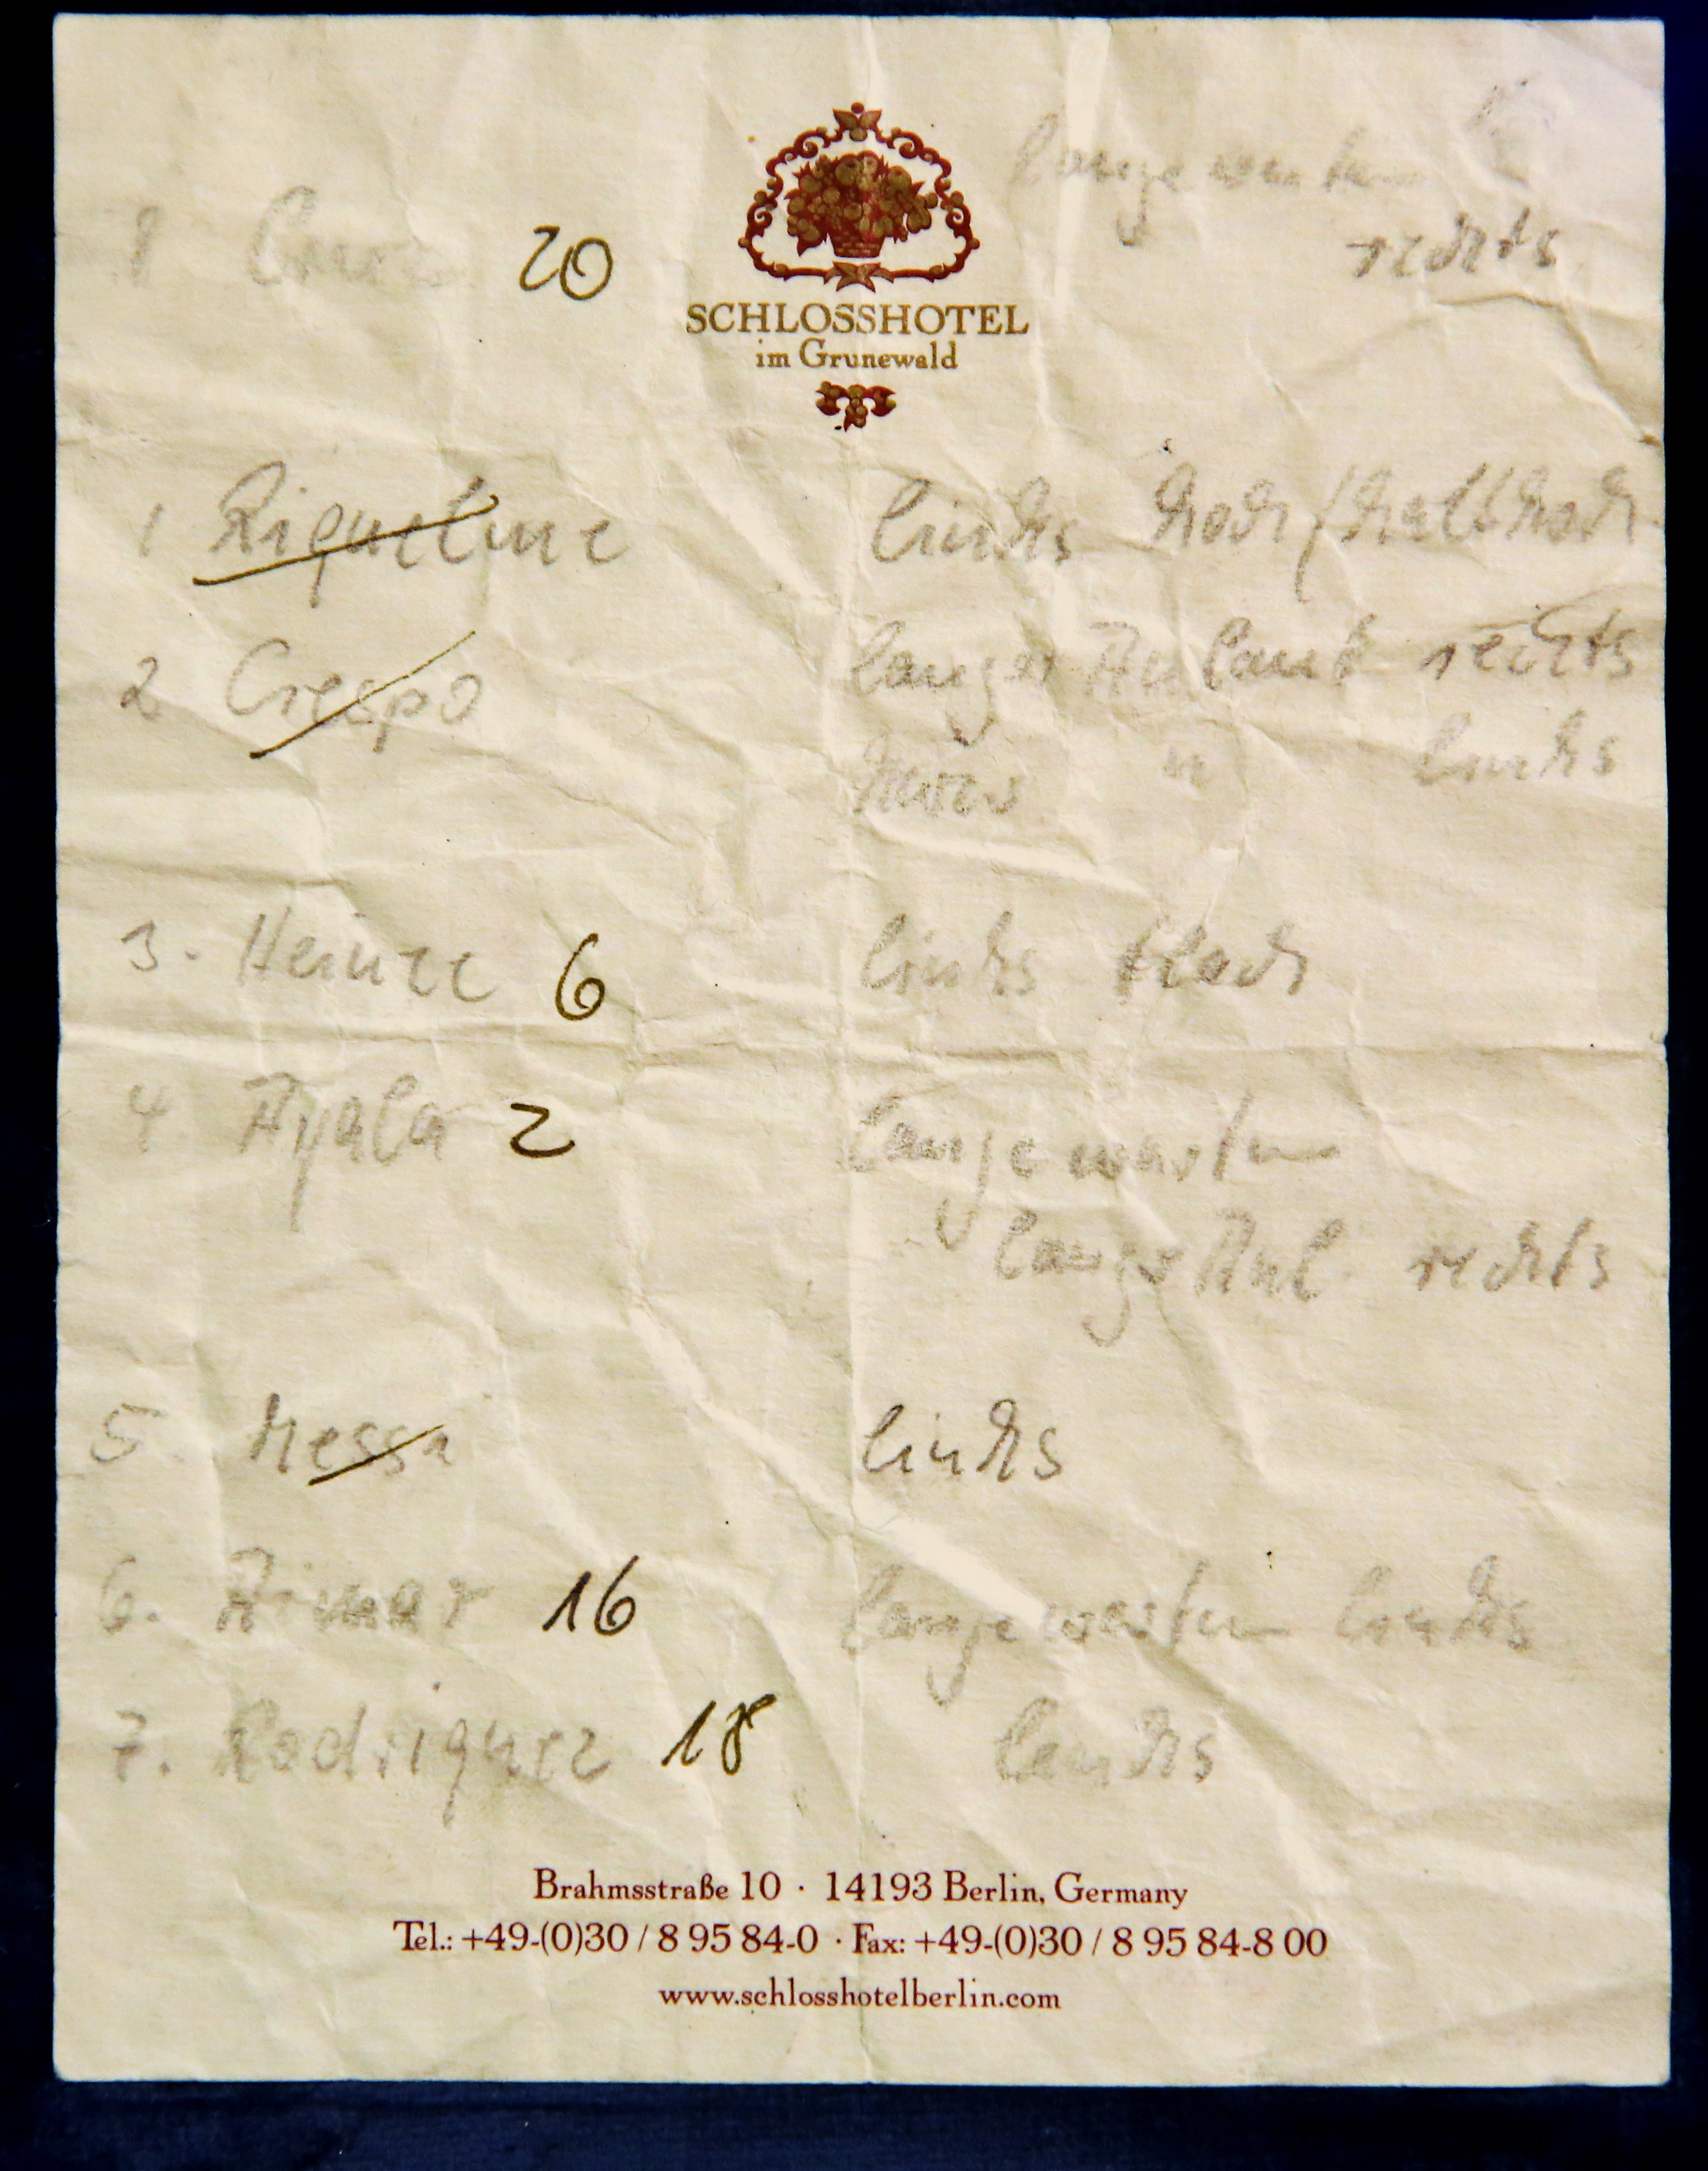 lange warten
rechts
8 Cruz 20
SCHLOSSHOTEL
im Grunewald
1 Riquelme links hoch/halbhoch
2 Crespo langer Anlauf rechts
kurzer " links
3. Heinze 6 links flach
4 Ayala 2 lange warten
langer Anl. rechts
5 Messi links
6. Aimar 16 lange warten links
7. Rodriguez 18 links
Brahmsstraße 10 · 14193 Berlin, Germany
Tel.: +49-(0)30 / 8 95 84-0 · Fax: +49-(0)30 / 8 95 84-8 00
www.schlosshotelberlin.com